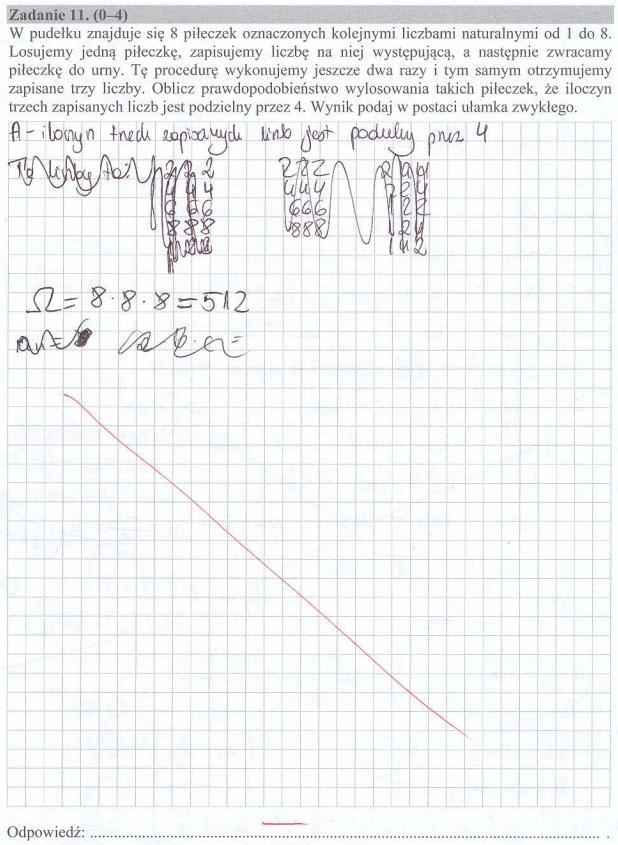 Zadanie 11. (0–4)
W pudełku znajduje się 8 piłeczek oznaczonych kolejnymi liczbami naturalnymi od 1 do 8.
Losujemy jedną piłeczkę, zapisujemy liczbę na niej występującą, a następnie zwracamy
piłeczkę do urny. Tę procedurę wykonujemy jeszcze dwa razy i tym samym otrzymujemy
zapisane trzy liczby. Oblicz prawdopodobieństwo wylosowania takich piłeczek, że iloczyn
trzech zapisanych liczb jest podzielny przez 4. Wynik podaj w postaci ułamka zwykłego.
A - iloczyn trzech zapisanych liczb jest podzielny przez 4
2 2 2 222
4 4 4 444
6 6 6 666
8 8 8 888
Ω = 8 · 8 · 8 = 512
Odpowiedź: